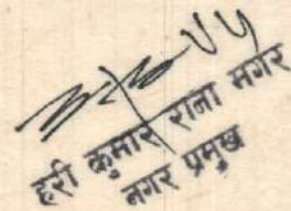 हरी कुमार राना मगर
नगर प्रमुख